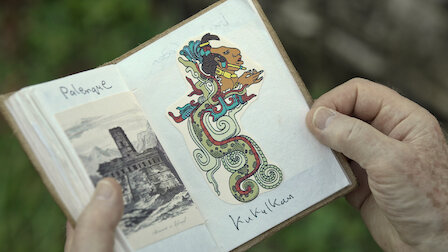 Palenque
Kukulkan